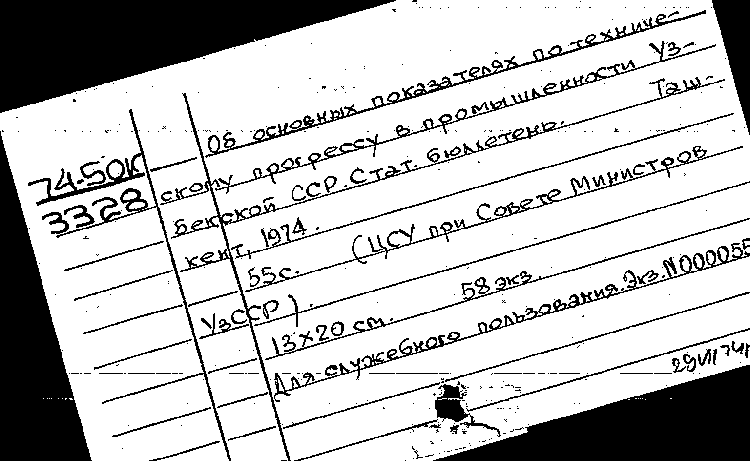 74-50К
3328
Об основных показателях по техниче-
скому прогрессу в промышленности Уз-
бекской ССР. Стат. бюллетень. Таш-
кент, 1974.
55с. (ЦСУ при Совете Министров
УзССР).
13×20 см. 58 экз.
Для служебного пользования. Экз. N000055